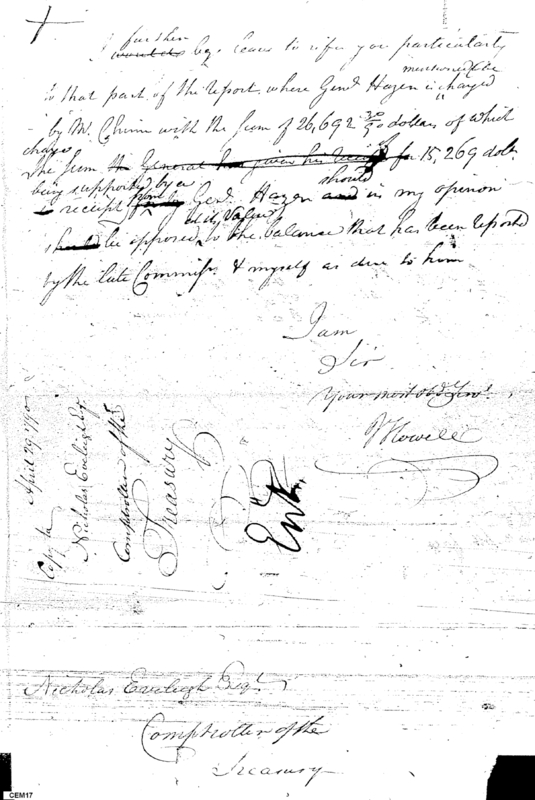 further
I would beg leave to refer you particularly
mentioned to be
to that part of the report, where Genl. Hazen is charged
by Mr. Chinn with the Sum of 26,692 30/90 dollars of which
charge
The Sum the General has given his receipt for 15,269 dolls.
being supported by a
receipt from Genl. Hazen should in my openion
should be opposed to the balance that has been reported
by the late Commissr. & myself as due to him
I am
Sir
Your most obdt. Servt.
J Howell
Copy to April 29 1790
Nicholas Eveleigh Esqr
Comptroller of the
Treasury
Entd.
Nicholas Eveleigh Esqr.
Comptroller of the
Treasury
CEM17